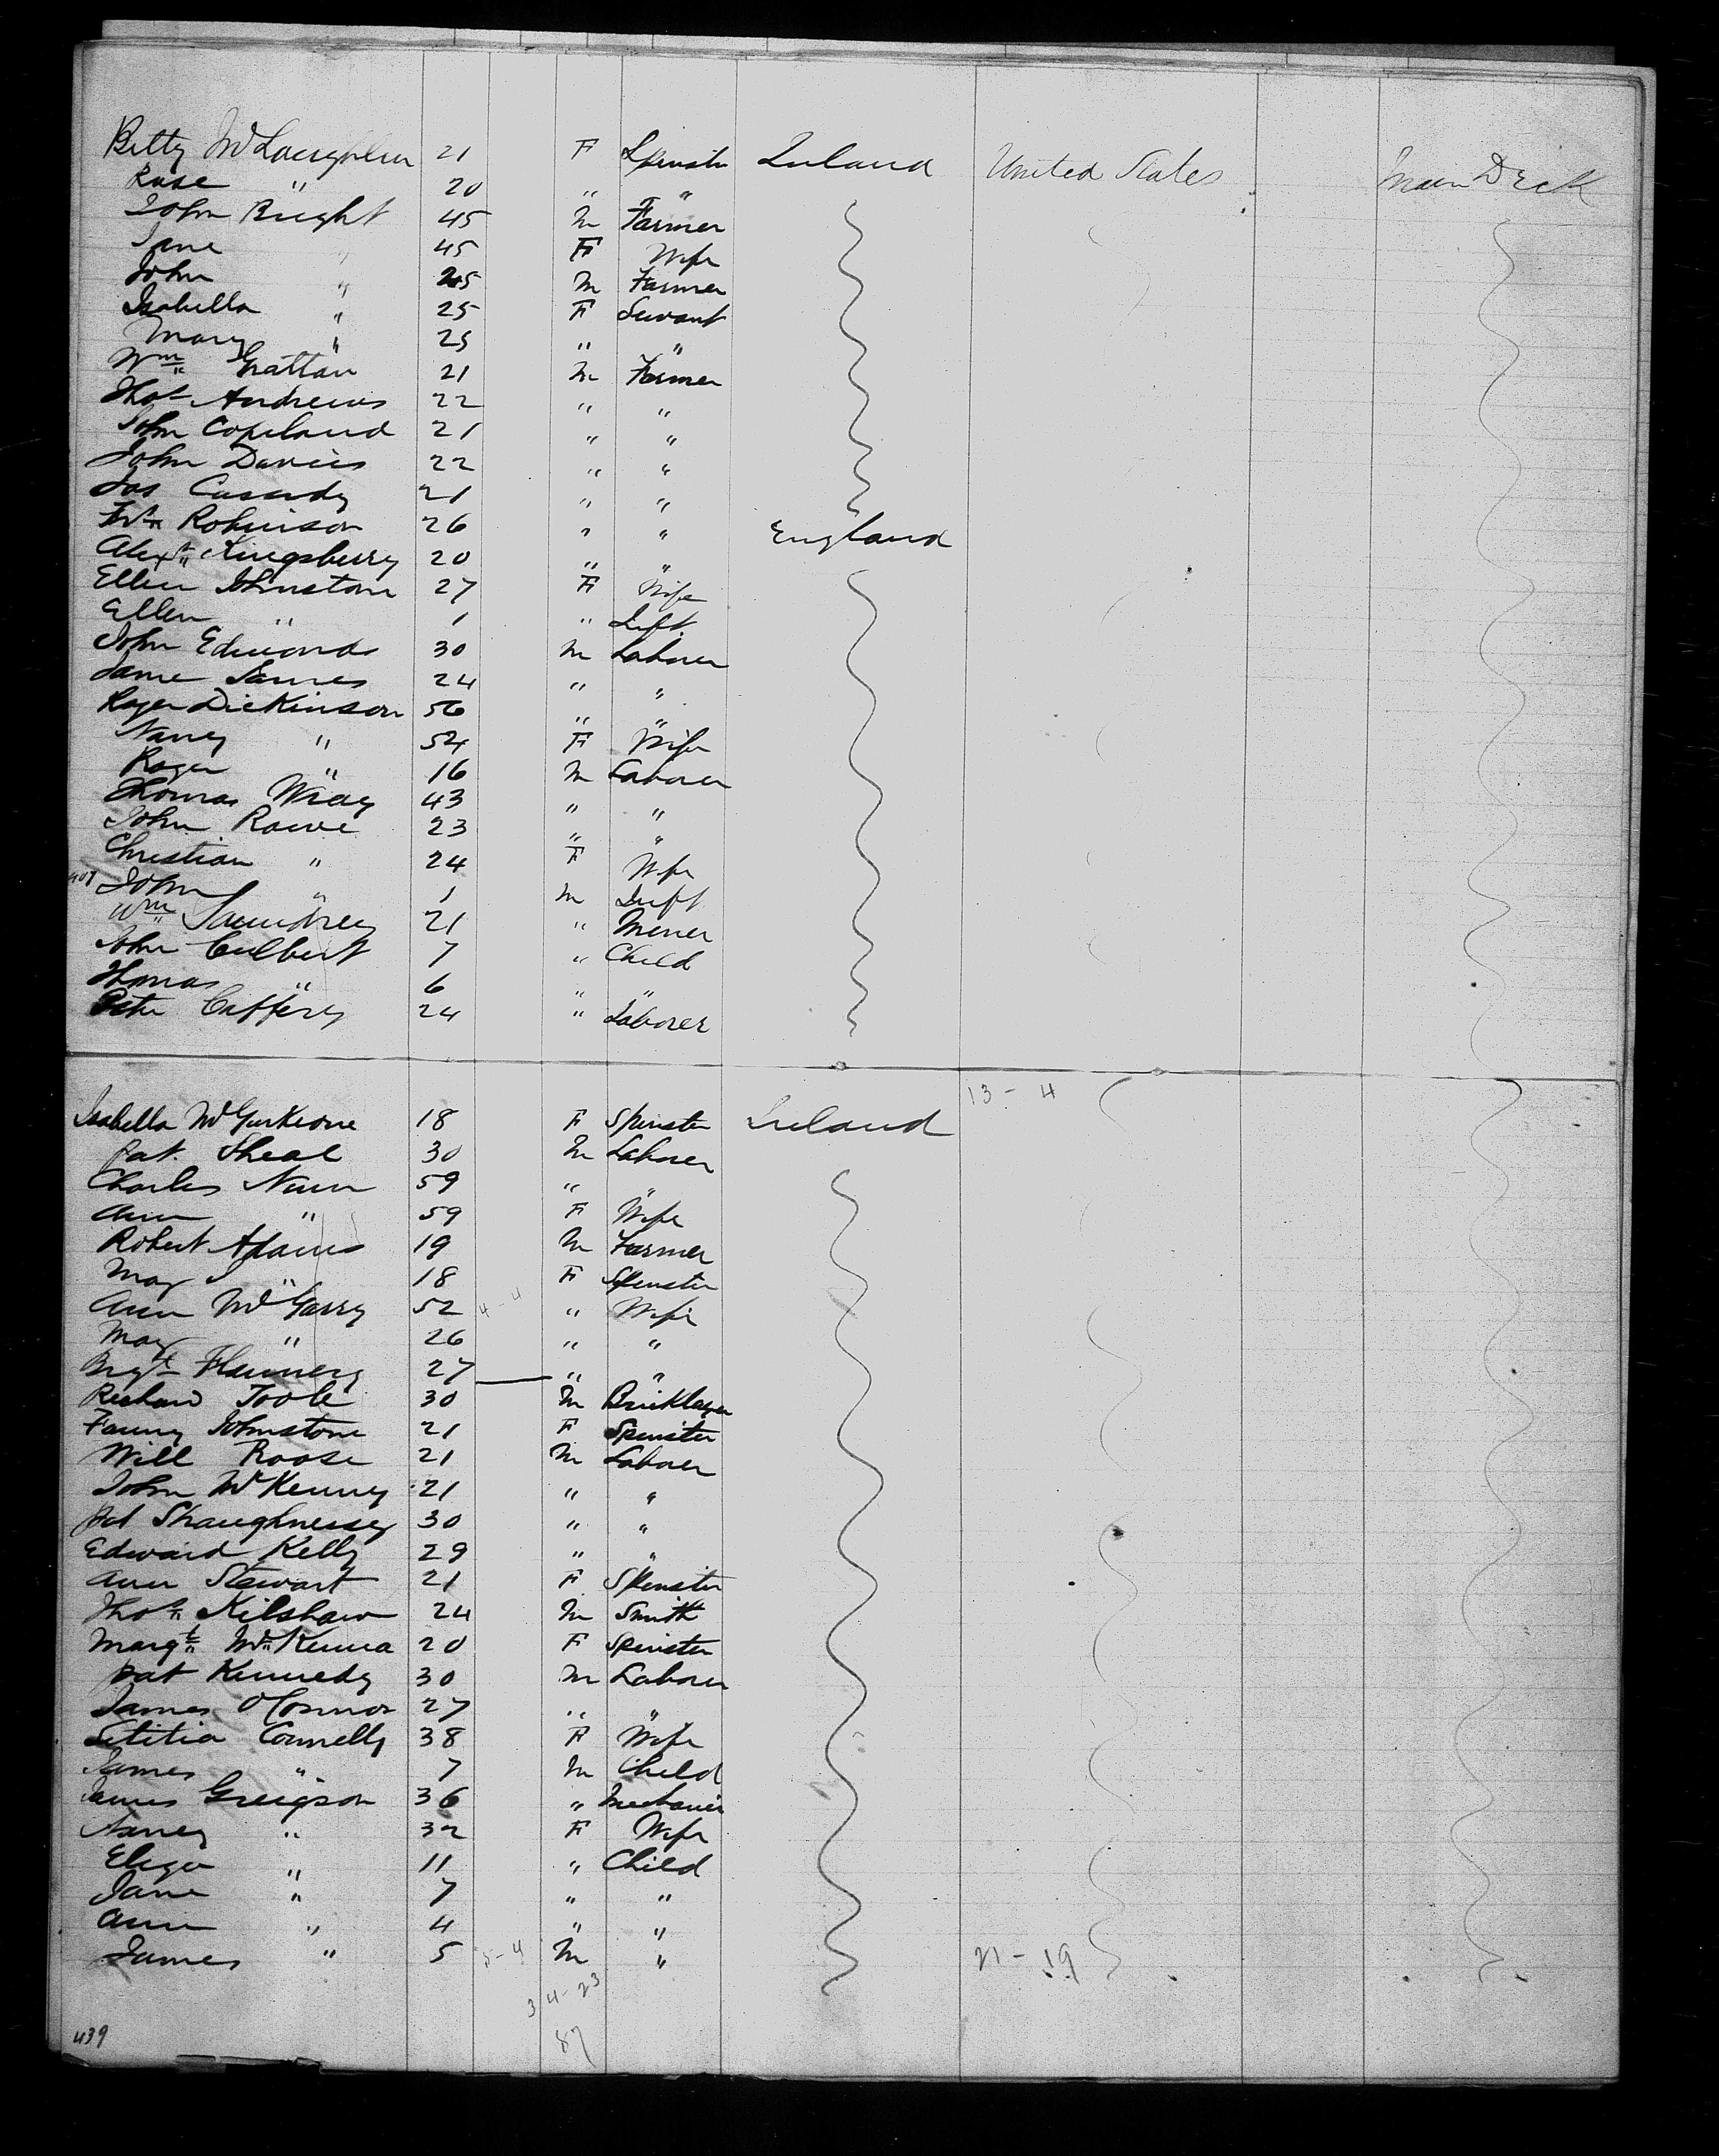 Betty McLaughlin 21 F Spinster Ireland United States Main Deck
Rose " 20 " "
John Bright 45 M Farmer
Jane " 45 F Wife
John " 25 M Farmer
Isabella " 25 F Servant
Mary " 25 " "
Wm Grattan 21 M Farmer
Thos Andrews 22 " "
John Copeland 21 " "
John Davies 22 " "
Jas Cassidy 21 " "
Robinson 26 " " England
Alexr Kingsberry 20 " "
Ellen Johnstone 27 F Wife
Ellen " 1 " Inft
John Edwards 30 M Laborer
James 24 " "
Roger Dickinson 56 " "
Nancy " 54 F Wife
Roger " 16 M Laborer
Thomas Wray 43 " "
John Rowe 23 " "
Christian " 24 F Wife
407 John " 1 M Inft
Wm Saundrey 21 " Miner
John Culbert 7 " Child
Thomas " 6 " "
Peter Caffery 24 " Laborer
13 - 4
Isabella 18 F Spinster Ireland
Pat. Sheal 30 M Laborer
Charles Nunn 59 " "
Ann " 59 F Wife
Robert Adams 19 M Farmer
May J " 18 F Spinster
Ann McGarry 52 4-4 " Wife
May " 26 " "
Brigt Flannery 27 " "
Richard Toole 30 M Bricklayer
Fanny Johnstone 21 F Spinster
Will Roose 21 M Laborer
John McKenny 21 " "
Pat Shaughnessey 30 " "
Edward Kelly 29 " "
Ann Stewart 21 F Spinster
Thos Kilshaw 24 M Smith
Margt McKenna 20 F Spinster
Pat Kennedy 30 M Laborer
James O'Connor 27 " "
Letitia Connelly 38 F Wife
James " 7 M Child
James Greigson 36 " Mechanic
Nancy " 32 F Wife
Eliza " 11 " Child
Jane " 7 " "
Ann " 4 " "
James " 5 5-4 M " 21 - 19
34-23
439 87